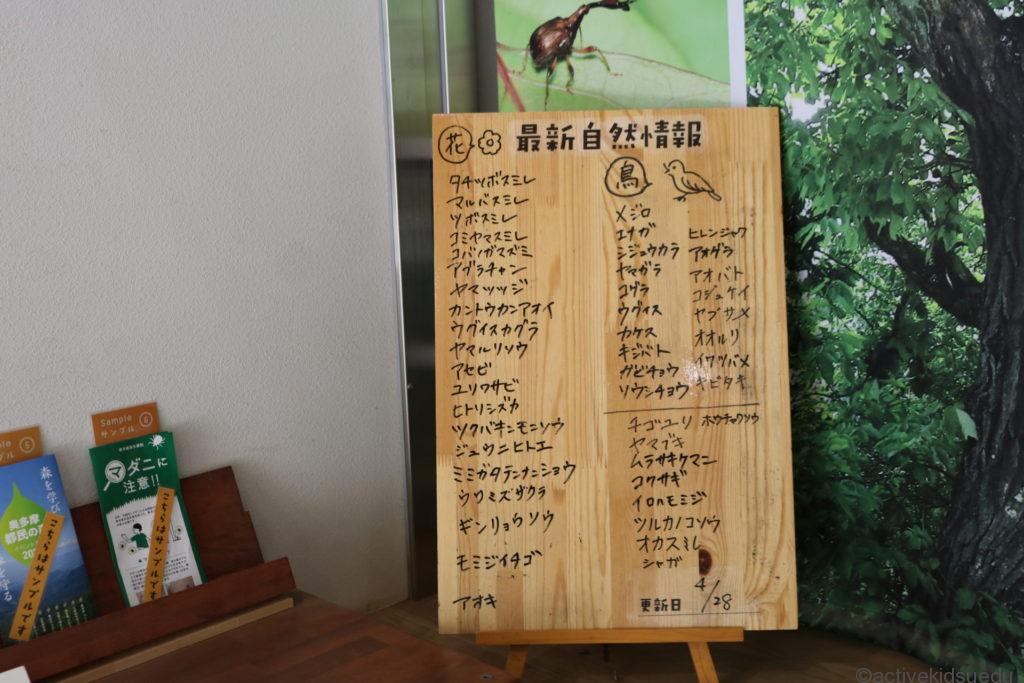 最新自然情報
花
タチツボスミレ
マルバスミレ
ツボスミレ
コミヤマスミレ
コバノガマズミ
アブラチャン
ヤマツツジ
カントウカンアオイ
ウグイスカグラ
ヤマルリソウ
アセビ
ユリワサビ
ヒトリシズカ
ツクバキンモンソウ
ジュウニヒトエ
ミミガタテンナンショウ
ウワミズザクラ
ギンリョウソウ
モミジイチゴ
アオキ
鳥
メジロ
エナガ
シジュウカラ
ヤマガラ
コゲラ
ウグイス
カケス
キジバト
ガビチョウ
ソウシチョウ
ヒレンジャク
アオゲラ
アオバト
コジュケイ
ヤブサメ
オオルリ
イワツバメ
キビタキ
チゴユリ ホウチャクソウ
ヤマブキ
ムラサキケマン
コクサギ
イロハモミジ
ツルカノコソウ
オカスミレ
シャガ
更新日 4/28
Sample 6
サンプル
マダニに
注意!!
こちらはサンプルです
森を学び
奥多摩
こちらはサンプルです
©activekidsuedu